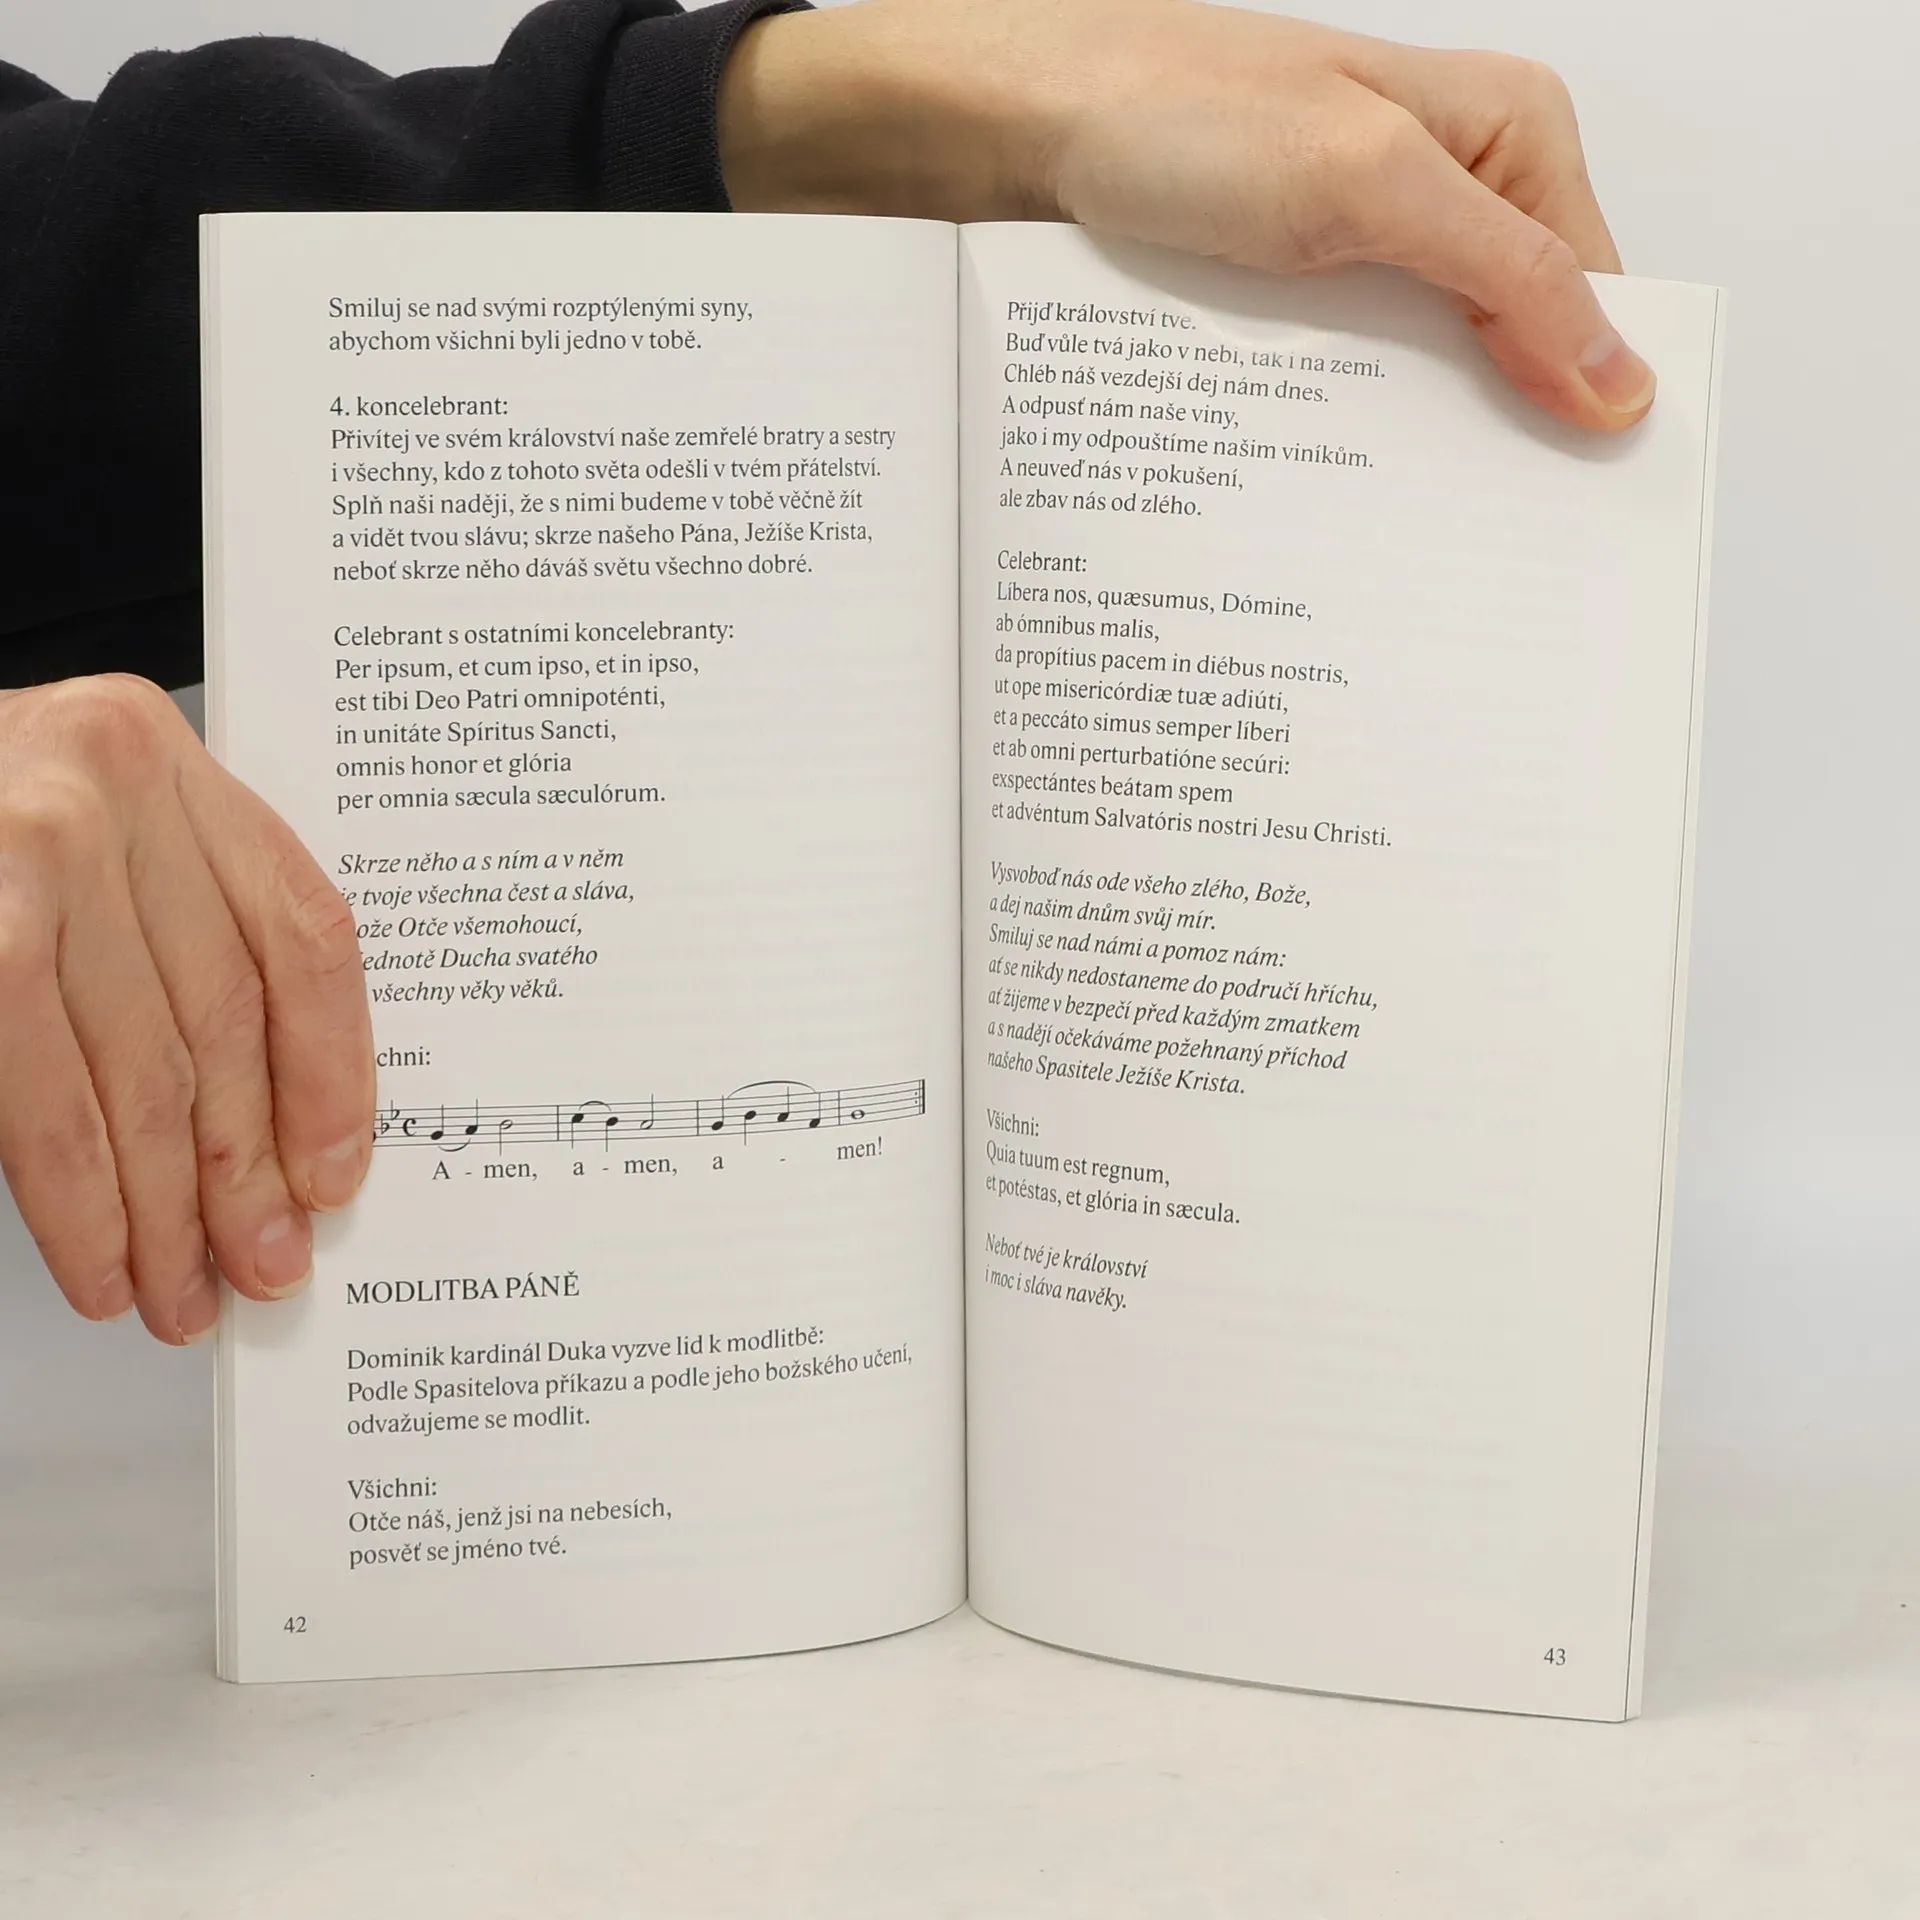 Smiluj se nad svými rozptýlenými syny,
abychom všichni byli jedno v tobě.
4. koncelebrant:
Přivítej ve svém království naše zemřelé bratry a sestry
i všechny, kdo z tohoto světa odešli v tvém přátelství.
Splň naši naději, že s nimi budeme v tobě věčně žít
a vidět tvou slávu; skrze našeho Pána, Ježíše Krista,
neboť skrze něho dáváš světu všechno dobré.
Celebrant s ostatními koncelebranty:
Per ipsum, et cum ipso, et in ipso,
est tibi Deo Patri omnipoténti,
in unitáte Spíritus Sancti,
omnis honor et glória
per omnia sæcula sæculórum.
Skrze něho a s ním a v něm
je tvoje všechna čest a sláva,
Otče všemohoucí,
Ducha svatého
všechny věky věků.
A - men, a - men, a - men!
MODLITBA PÁNĚ
Dominik kardinál Duka vyzve lid k modlitbě:
Podle Spasitelova příkazu a podle jeho božského učení,
odvažujeme se modlit.
Všichni:
Otče náš, jenž jsi na nebesích,
posvěť se jméno tvé.
42
Přijď království tve.
Buď vůle tvá jako v nebi, tak i na zemi.
Chléb náš vezdejší dej nám dnes.
A odpusť nám naše viny,
jako i my odpouštíme našim viníkům.
A neuveď nás v pokušení,
ale zbav nás od zlého.
Celebrant:
Líbera nos, quæsumus, Dómine,
ab ómnibus malis,
da propítius pacem in diébus nostris,
ut ope misericórdiæ tuæ adiúti,
et a peccáto simus semper líberi
et ab omni perturbatióne secúri:
exspectántes beátam spem
et advéntum Salvatóris nostri Jesu Christi.
Vysvoboď nás ode všeho zlého, Bože,
a dej našim dnům svůj mír.
Smiluj se nad námi a pomoz nám:
ať se nikdy nedostaneme do područí hříchu,
ať žijeme v bezpečí před každým zmatkem
a s nadějí očekáváme požehnaný příchod
našeho Spasitele Ježíše Krista.
Všichni:
Quia tuum est regnum,
et potéstas, et glória in sæcula.
Neboť tvé je království
i moc i sláva navěky.
43